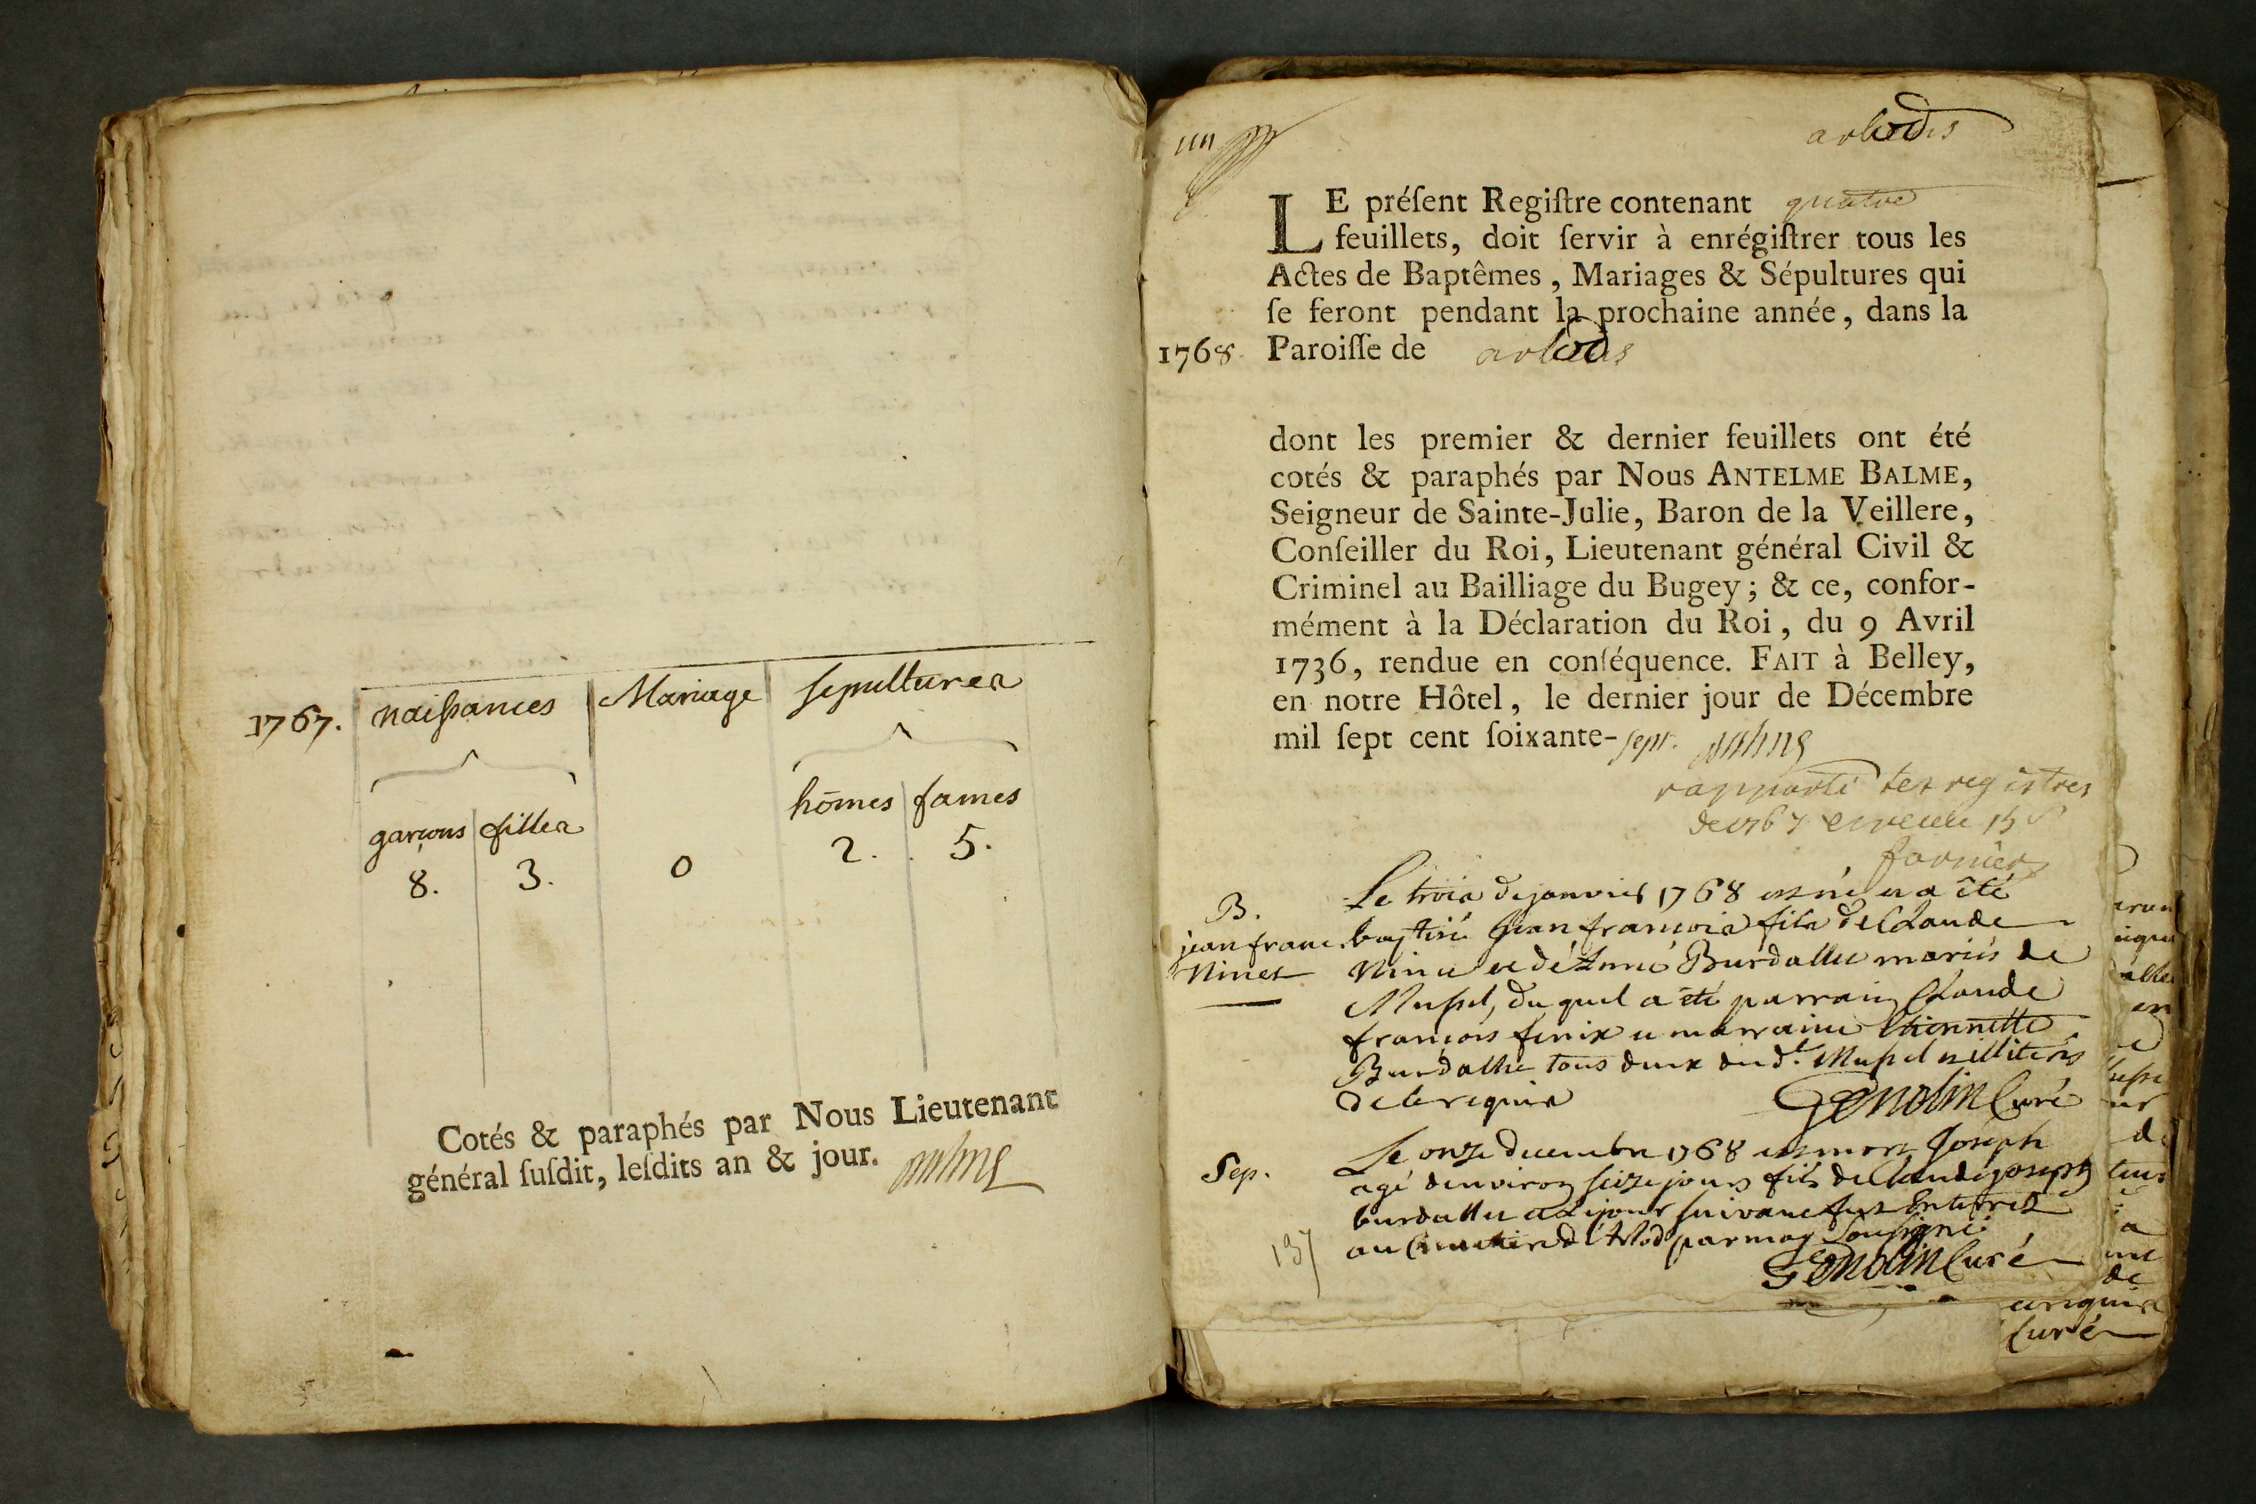 1767. naissances Mariage sepultures
hōmes fames
garçons filles
8. 3. 0 2. 5.
Cotés & paraphés par Nous Lieutenant
général ſuſdit, leſdits an & jour.
arlodis
LE préſent Regiſtre contenant quatre
feuillets, doit ſervir à enrégiſtrer tous les
Actes de Baptêmes, Mariages & Sépultures qui
ſe feront pendant la prochaine année, dans la
1768 Paroiſſe de arlodis
dont les premier & dernier feuillets ont été
cotés & paraphés par Nous ANTELME BALME,
Seigneur de Sainte-Julie, Baron de la Veillere,
Conſeiller du Roi, Lieutenant général Civil &
Criminel au Bailliage du Bugey; & ce, confor-
mément à la Déclaration du Roi, du 9 Avril
1736, rendue en conſéquence. FAIT à Belley,
en notre Hôtel, le dernier jour de Décembre
mil ſept cent ſoixante-sept.
rapporté les registres
de 1767
B. Le trois de janvier 1768 est né et a été
jean franc. baptisé Jean francois fils de Claude
Ninet Ninet et de Anne Burdallet mariés de
Mussel, du quel a été parrain Claude
françois fenix et marraine Etiennette
Burdallet tous deux du dt. Mussel illiterés
de ce requis Genolin Curé
Sep. Le onze decembre 1768 est mort Joseph
agé denviron seize jours fils de Claude joseph
burdallet et le jour suivant fut Enterré
au Cimetiere d'Arlod par moy soussigné
137 Genolin Curé
requis
Curé